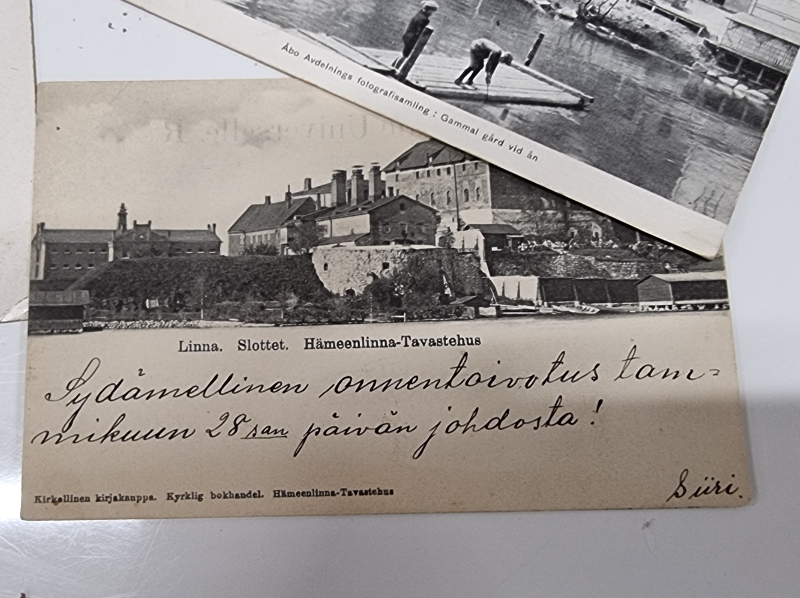 Åbo Avdelnings fotografisamling : Gammal gård vid ån
Linna. Slottet. Hämeenlinna-Tavastehus
Sydämellinen onnentoivotus tam=
mikuun 28 san päivän johdosta!
Siiri.
Kirkollinen kirjakauppa. Kyrklig bokhandel. Hämeenlinna-Tavastehus